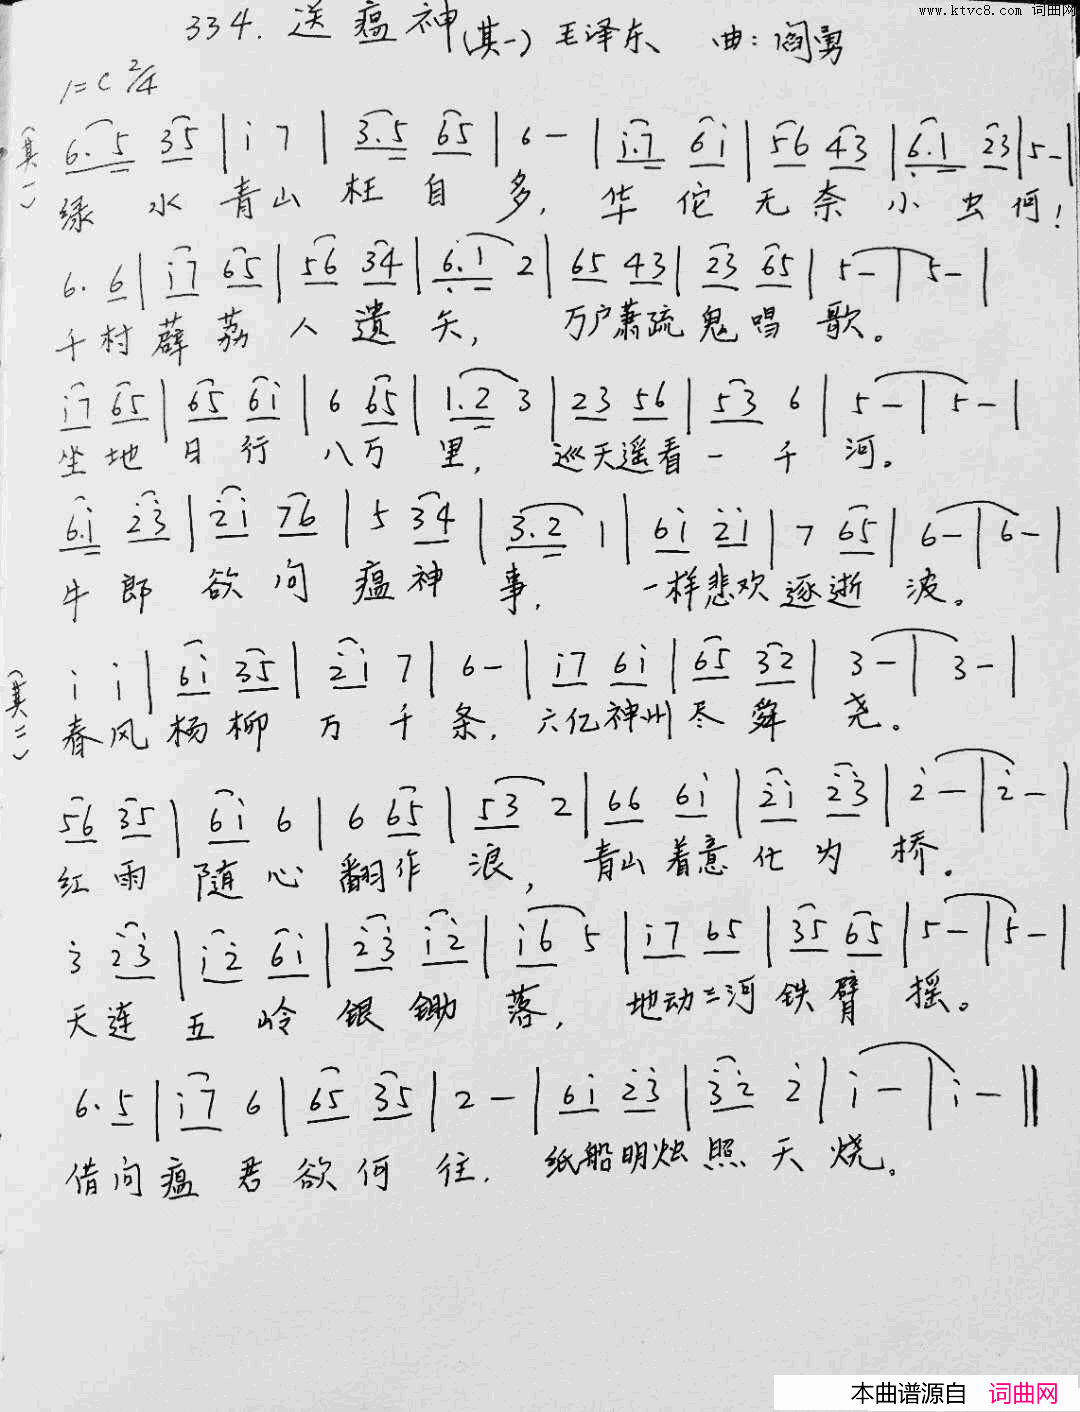 www.ktvc8.com 词曲网
334. 送瘟神(其一) 毛泽东 曲: 阎勇
1=C 2/4
(其一)
6.5 35 | i 7 | 3.5 65 | 6 - | i.7 6i | 56 43 | 6.1 23 | 5 - |
绿 水 青山 枉 自 多, 华 佗 无 奈 小 虫 何!
6. 6 | i7 65 | 56 34 | 6.1 2 | 65 43 | 23 65 | 5 - | 5 - |
千村薜荔 人 遗 矢, 万户萧疏鬼唱 歌。
i7 65 | 65 6i | 6 65 | 1.2 3 | 23 56 | 53 6 | 5 - | 5 - |
坐地 日 行 八万 里, 巡天遥看一 千 河。
6.i 23 | 2i 76 | 5 34 | 3.2 1 | 6i 2i | 7 65 | 6 - | 6 - |
牛 郎 欲 问 瘟神 事, 一样悲欢逐逝 波。
(其二)
i i | 6i 35 | 2i 7 | 6 - | i7 6i | 65 32 | 3 - | 3 - |
春风杨柳 万 千 条, 六亿神州尽 舜 尧。
56 35 | 6i 6 | 6 65 | 53 2 | 66 6i | 2i 23 | 2 - | 2 - |
红 雨 随 心 翻作 浪, 青山着意化为 桥。
3 23 | i2 6i | 23 i2 | i6 5 | i7 65 | 35 65 | 5 - | 5 - |
天连 五 岭 银 锄 落, 地动三河铁臂 摇。
6. 5 | i7 6 | 65 35 | 2 - | 6i 23 | 32 2 | i - | i - ||
借问瘟 君 欲何 往, 纸船明烛照天 烧。
本曲谱源自 词曲网